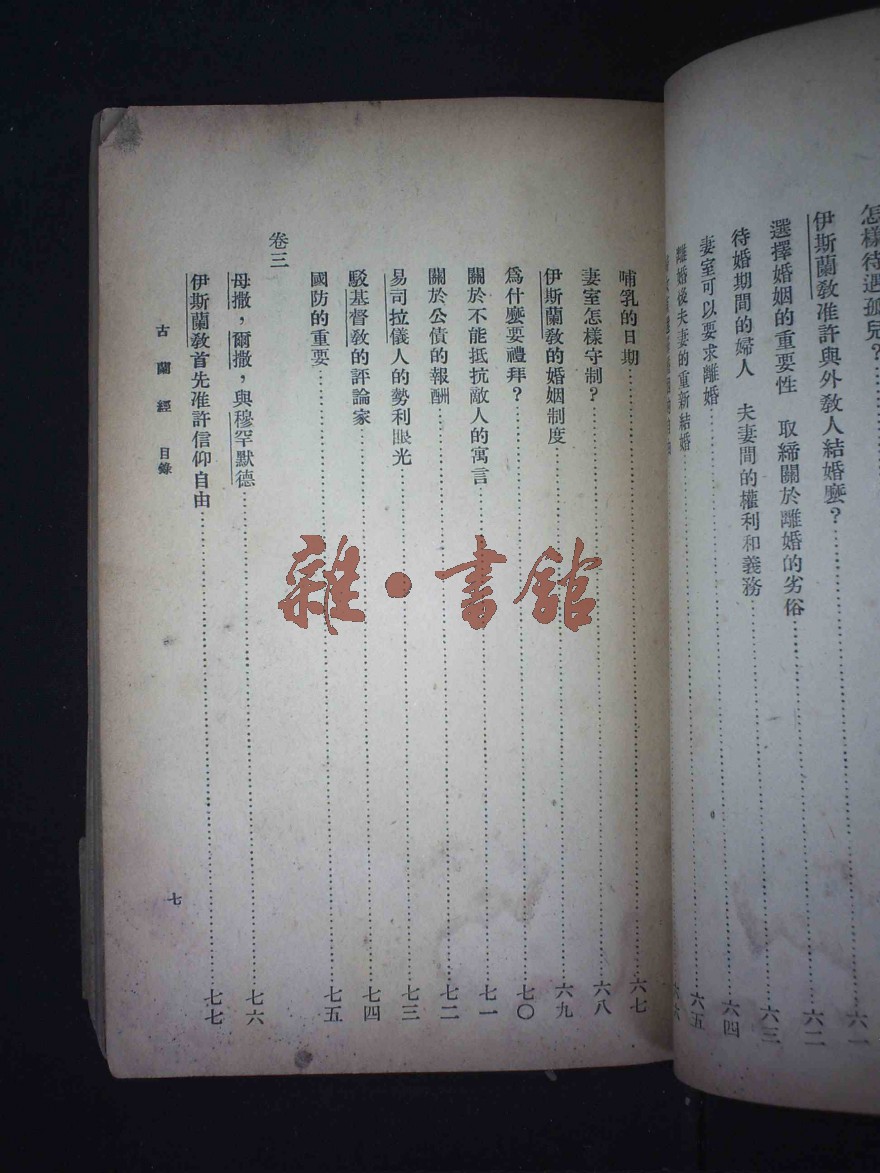 怎樣待遇孤兒?……六一
伊斯蘭教准許與外教人結婚麽?……六二
選擇婚姻的重要性　取締關於離婚的劣俗……六三
待婚期間的婦人　夫妻間的權利和義務……六四
妻室可以要求離婚……六五
離婚後夫妻的重新結婚……六六
哺乳的日期……六七
妻室怎樣守制?……六八
伊斯蘭教的婚姻制度……六九
爲什麼要禮拜?……七〇
關於不能抵抗敵人的寓言……七一
關於公債的報酬……七二
易司拉儀人的勢利眼光……七三
駁基督教的評論家……七四
國防的重要……七五
卷三
母撒，爾撒，與穆罕默德……七六
伊斯蘭教首先准許信仰自由……七七
古蘭經　目錄
七
雜·書館